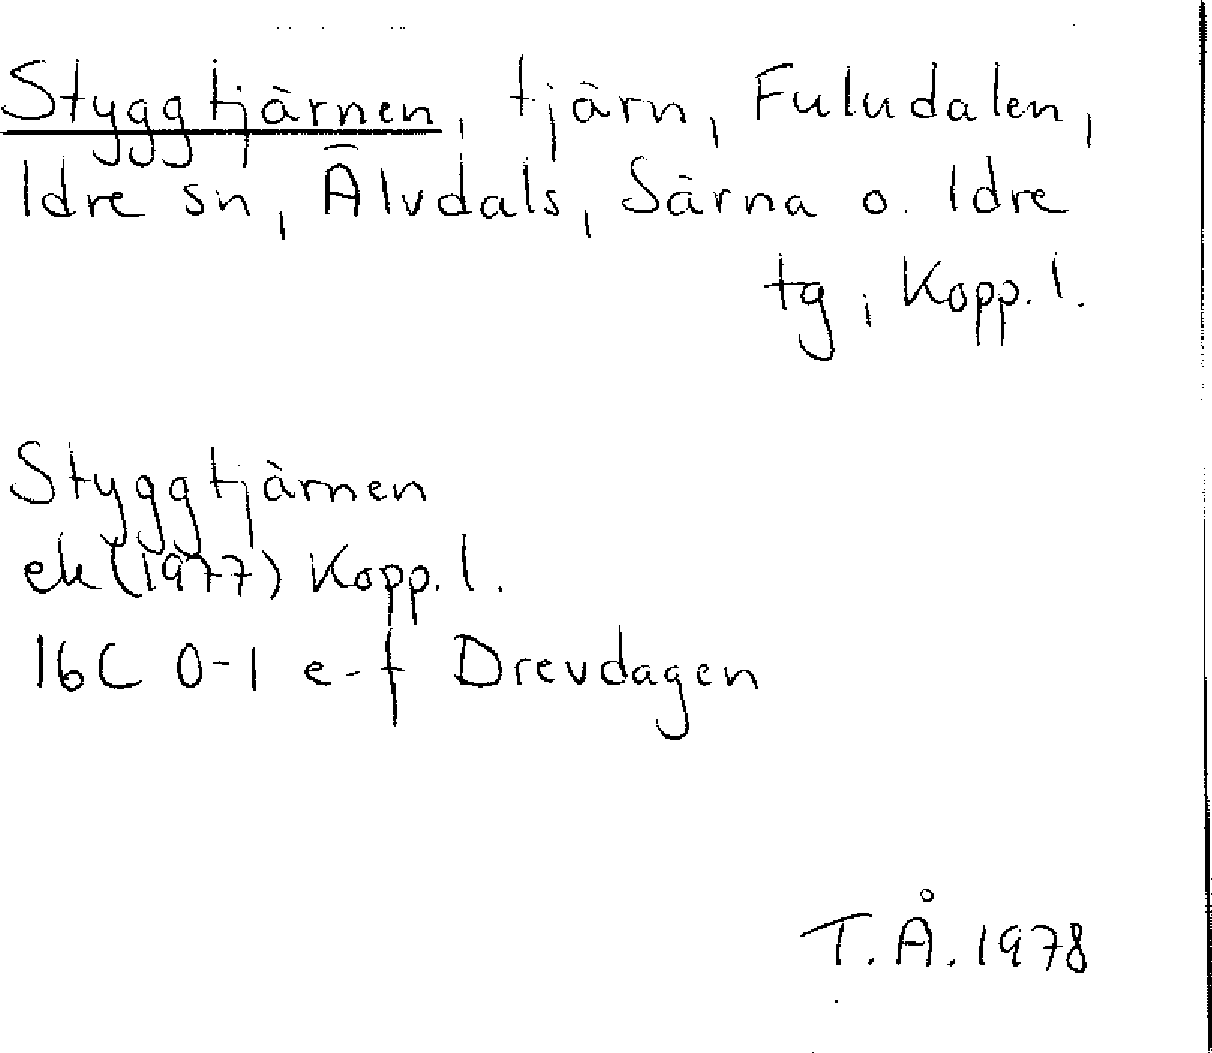 Styggtjärnen, tjärn, Fuludalen,
Idre sn, Älvdals, Särna o. Idre
tg, Kopp. l.
Styggtjärnen
ek (1977) Kopp. l.
16C 0-1 e-f Drevdagen
T. Å. 1978